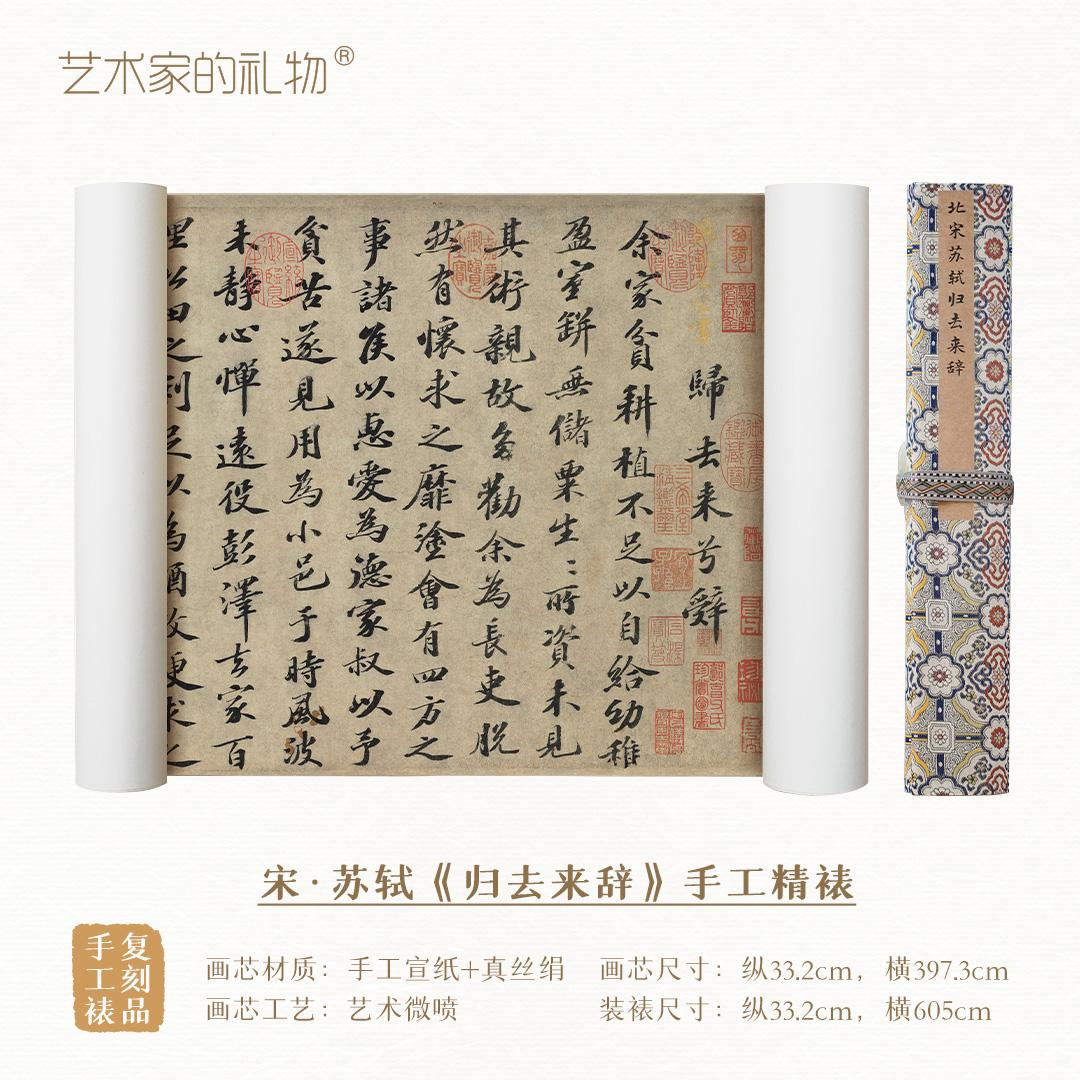 艺术家的礼物®
歸去来兮辭
余家貧耕植不足以自給幼稚
盈室缾無儲粟生〻所資未見
其術親故多勸余為長吏脫
然有懷求之靡塗會有四方之
事諸侯以惠愛為德家叔以予
貧苦遂見用為小邑于時風波
未靜心憚遠役彭澤去家百
里公田之利足以為酒故便求之
北宋苏轼归去来辞
宋·苏轼《归去来辞》手工精裱
复刻品
手工裱
画芯材质：手工宣纸+真丝绢
画芯尺寸：纵33.2cm，横397.3cm
画芯工艺：艺术微喷
装裱尺寸：纵33.2cm，横605cm